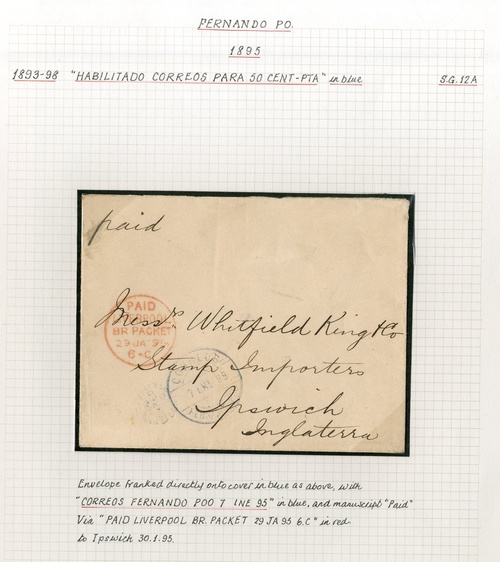 FERNANDO PO.
1895
1893-98 "HABILITADO CORREOS PARA 50 CENT-PTA" in blue S.G. 12A
paid
PAID
LIVERPOOL
BR PACKET
29 JA 95
6·C
Messrs. Whitfield King & Co
Stamp Importers
Ipswich
Inglaterra
Envelope franked directly onto cover in blue as above, with
"CORREOS FERNANDO POO 7 INE 95" in blue, and manuscript "Paid"
Via "PAID LIVERPOOL BR. PACKET 29 JA 95 6.C" in red.
to Ipswich 30.1.95.